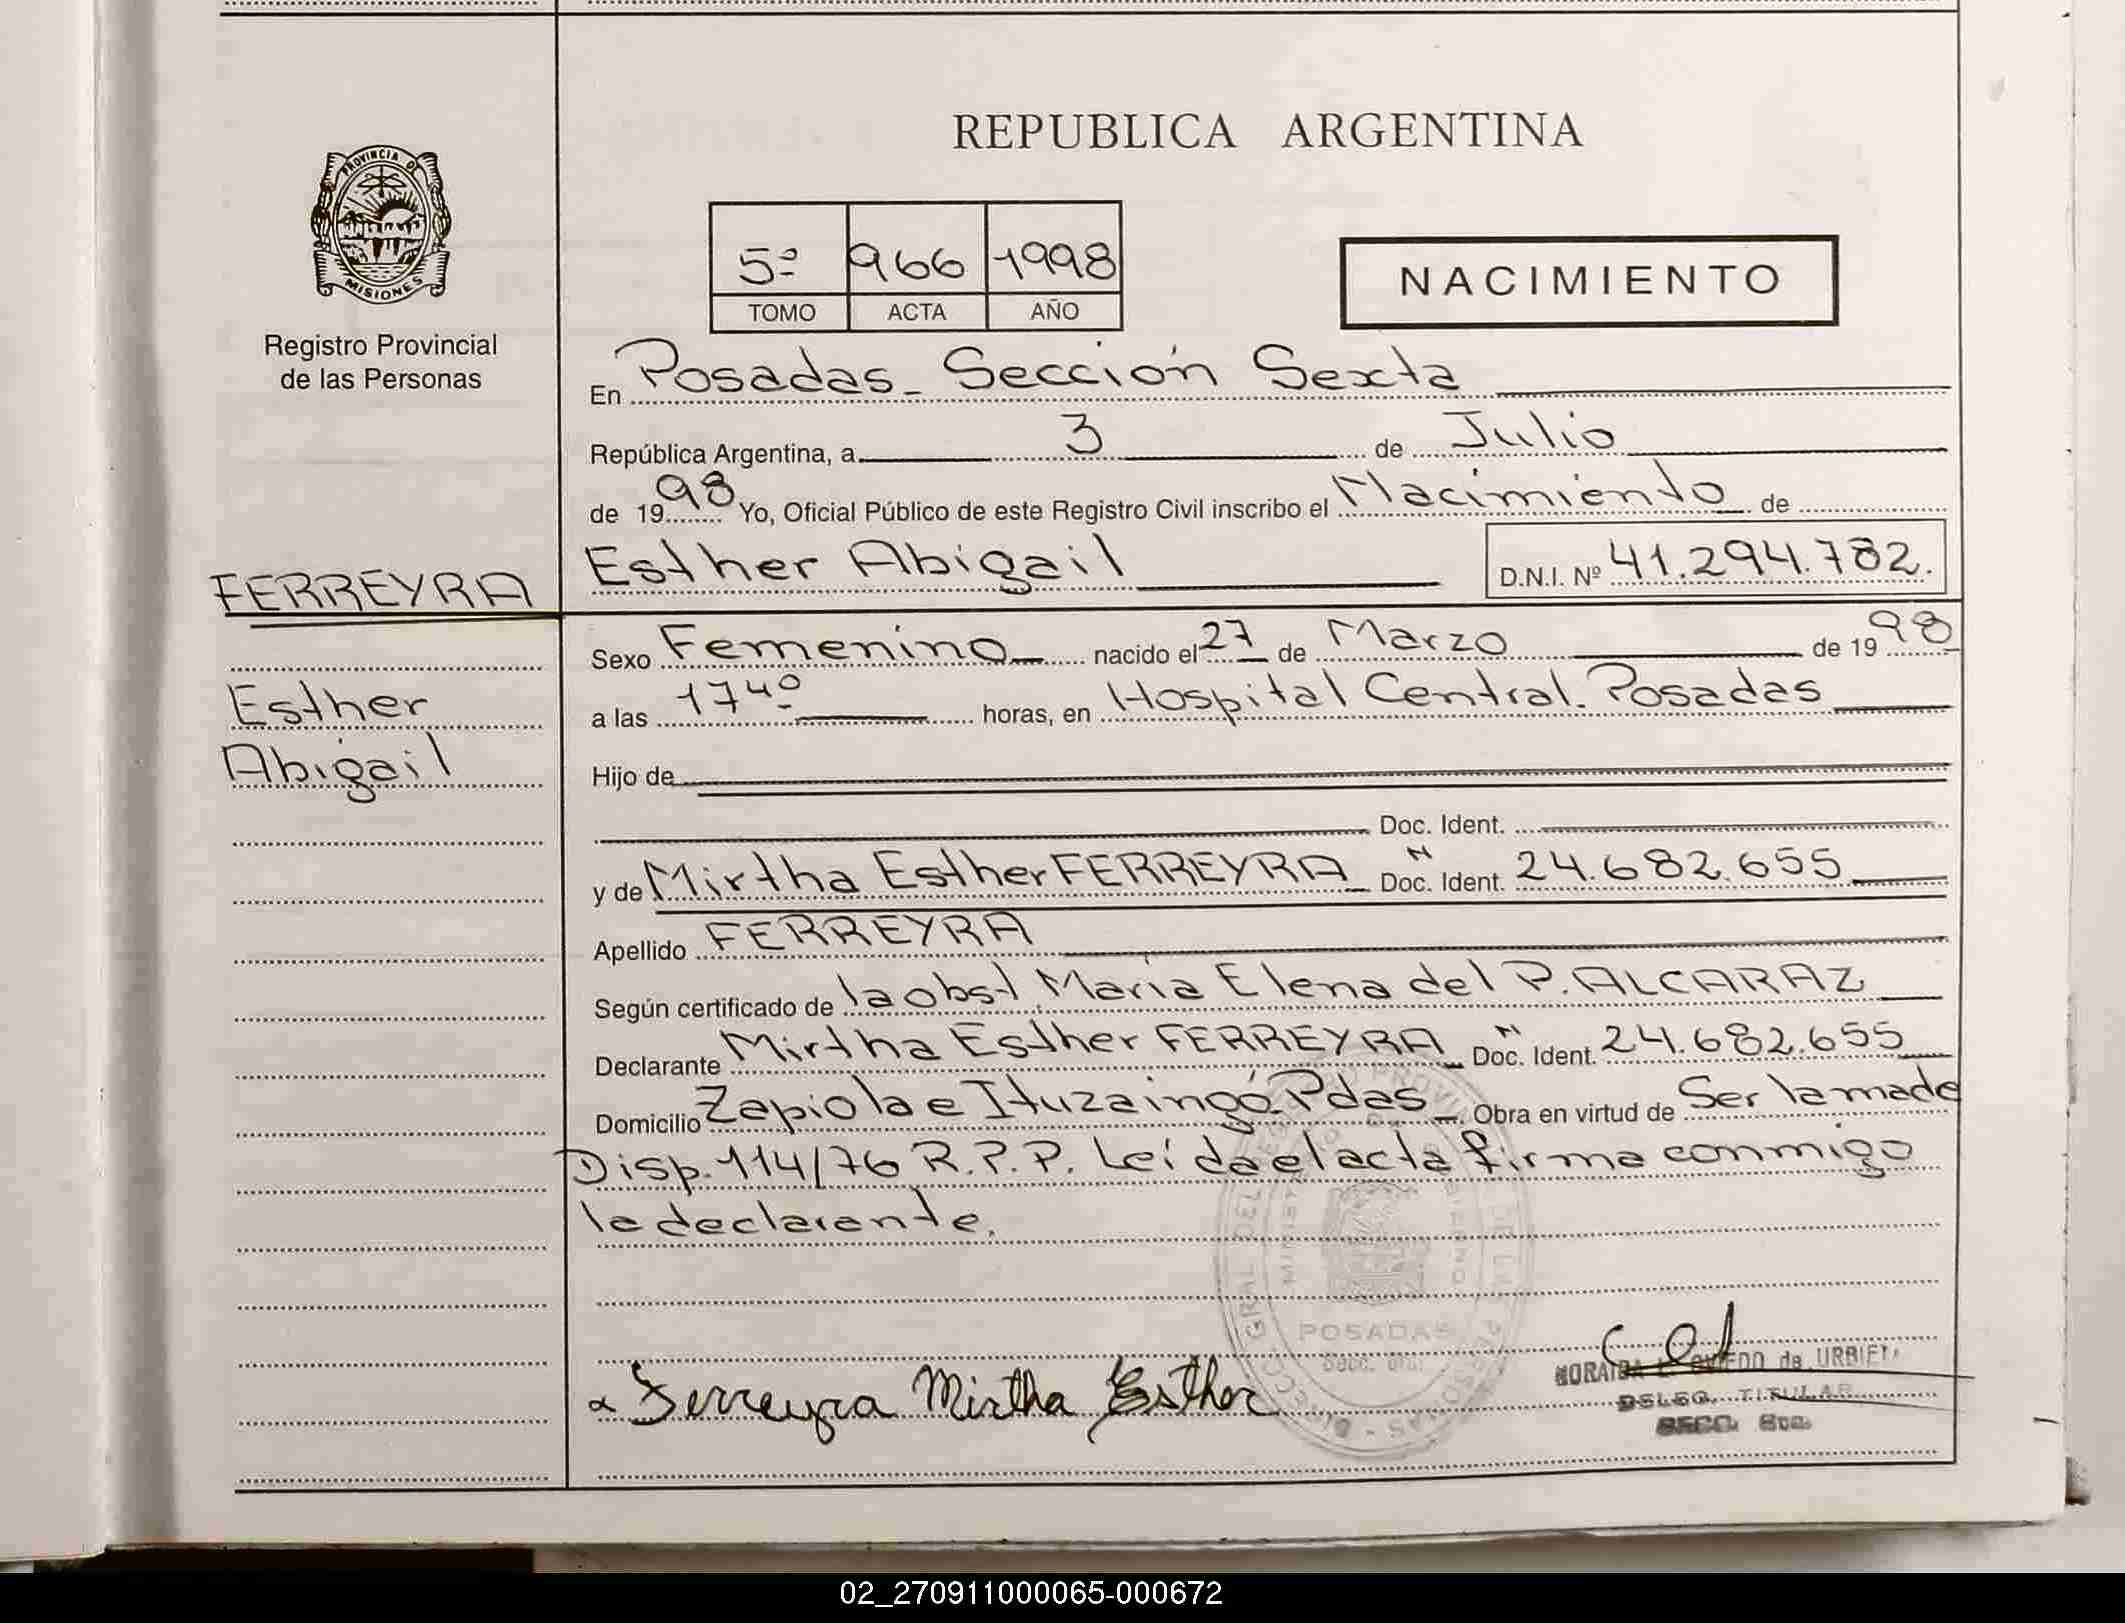 PROVINCIA DE
MISIONES
Registro Provincial
de las Personas
FERREYRA
Esther
Abigail
REPUBLICA ARGENTINA
5º 966 1998
TOMO ACTA AÑO
NACIMIENTO
En Posadas - Sección Sexta
República Argentina, a 3 de Julio
de 1998 Yo, Oficial Público de este Registro Civil inscribo el Nacimiento de
Esther Abigail D.N.I. Nº 41.294.782.
Sexo Femenino nacido el 27 de Marzo de 1998
a las 17 40 horas, en Hospital Central. Posadas
Hijo de
Doc. Ident.
y de Mirtha Esther FERREYRA Doc. Ident. N 24.682.655
Apellido FERREYRA
Según certificado de la obst María Elena del P. ALCARAZ
Declarante Mirtha Esther FERREYRA Doc. Ident. N 24.682.655
Domicilio Zapiola e Ituzaingó. Pdas Obra en virtud de Ser la made
Disp. 114/76 R.P.P. Leída el acta firma conmigo
la declarante.
POSADAS
Ferreyra Mirtha Esther
de URBIETA
DELEG. TITULAR
SECC. 6ta.
02_270911000065-000672